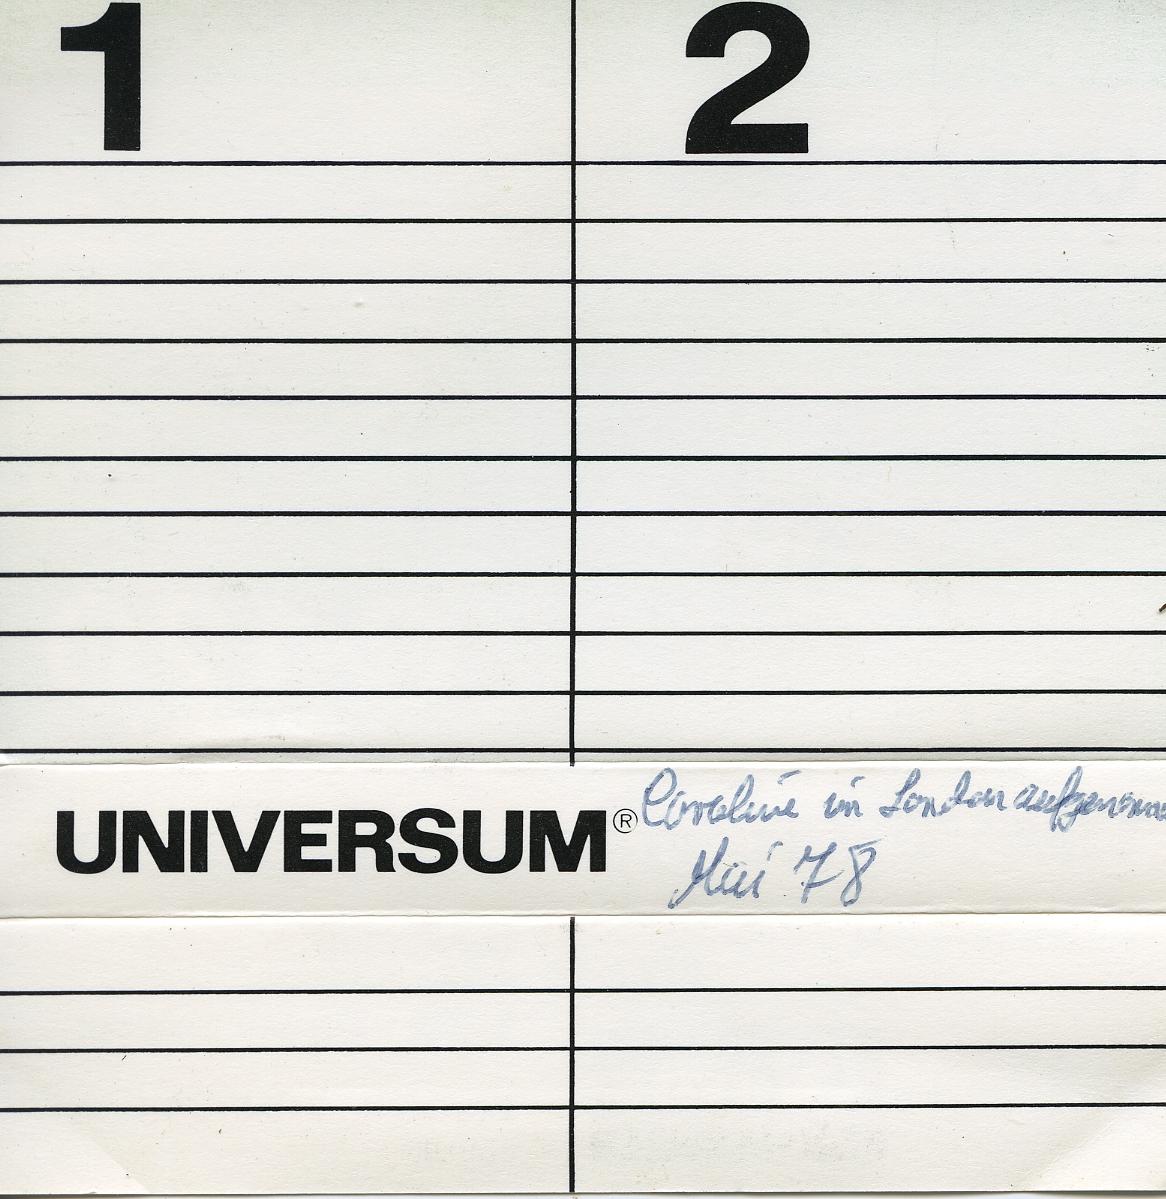 1 2
UNIVERSUM® Caroline in London aufgenomme
Mai 78